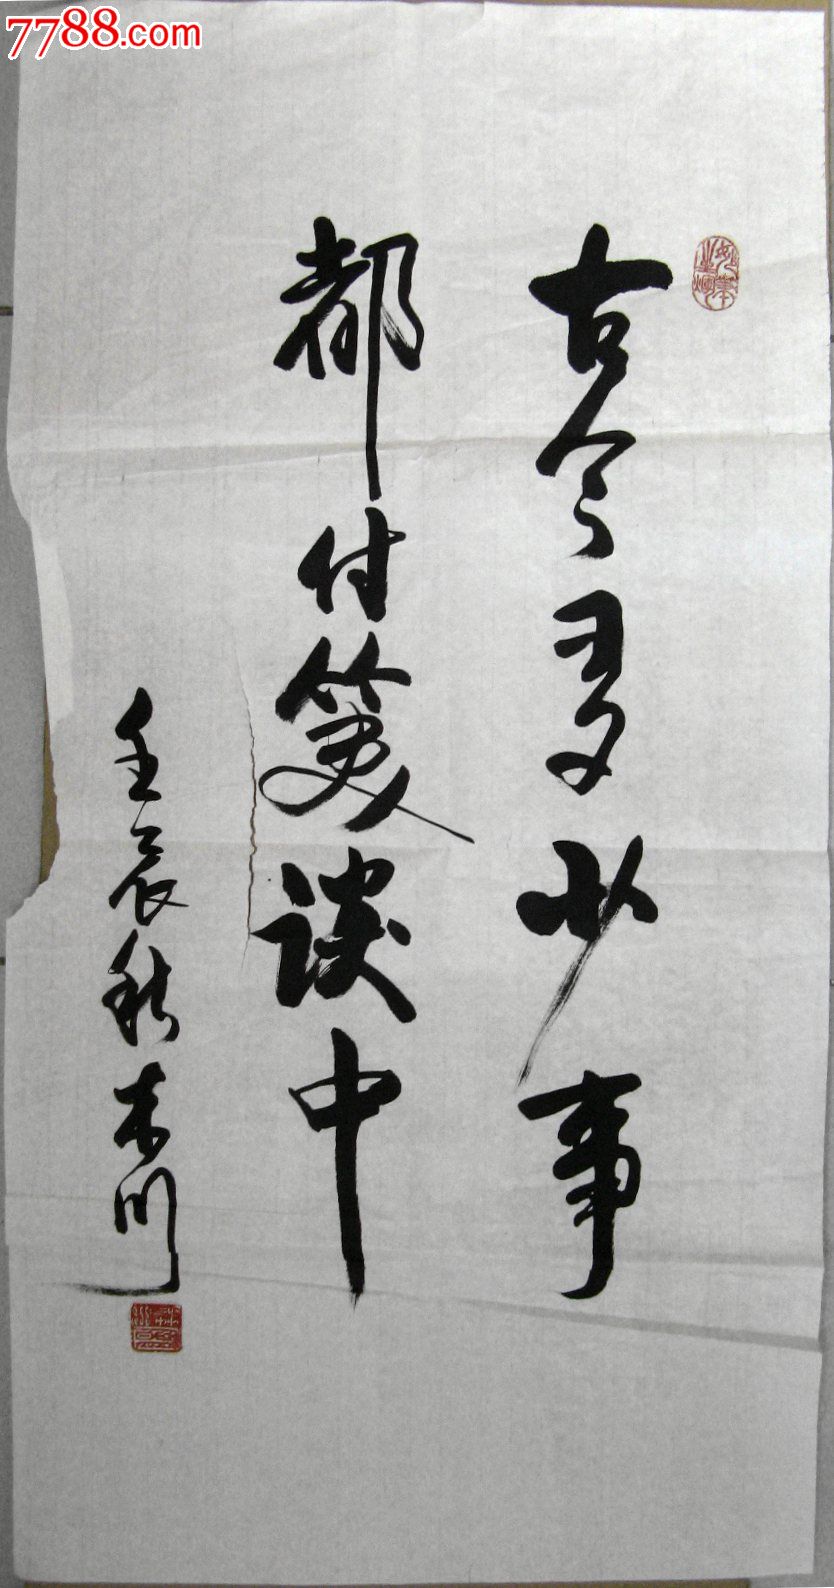 7788.com
古今多少事
都付笑談中
壬辰秋木川